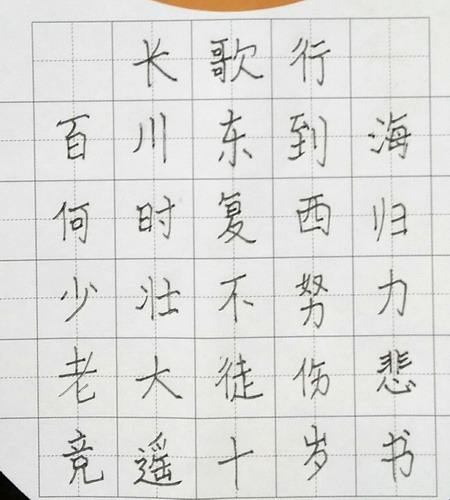 长歌行
百川东到海
何时复西归
少壮不努力
老大徒伤悲
竞遥十岁书